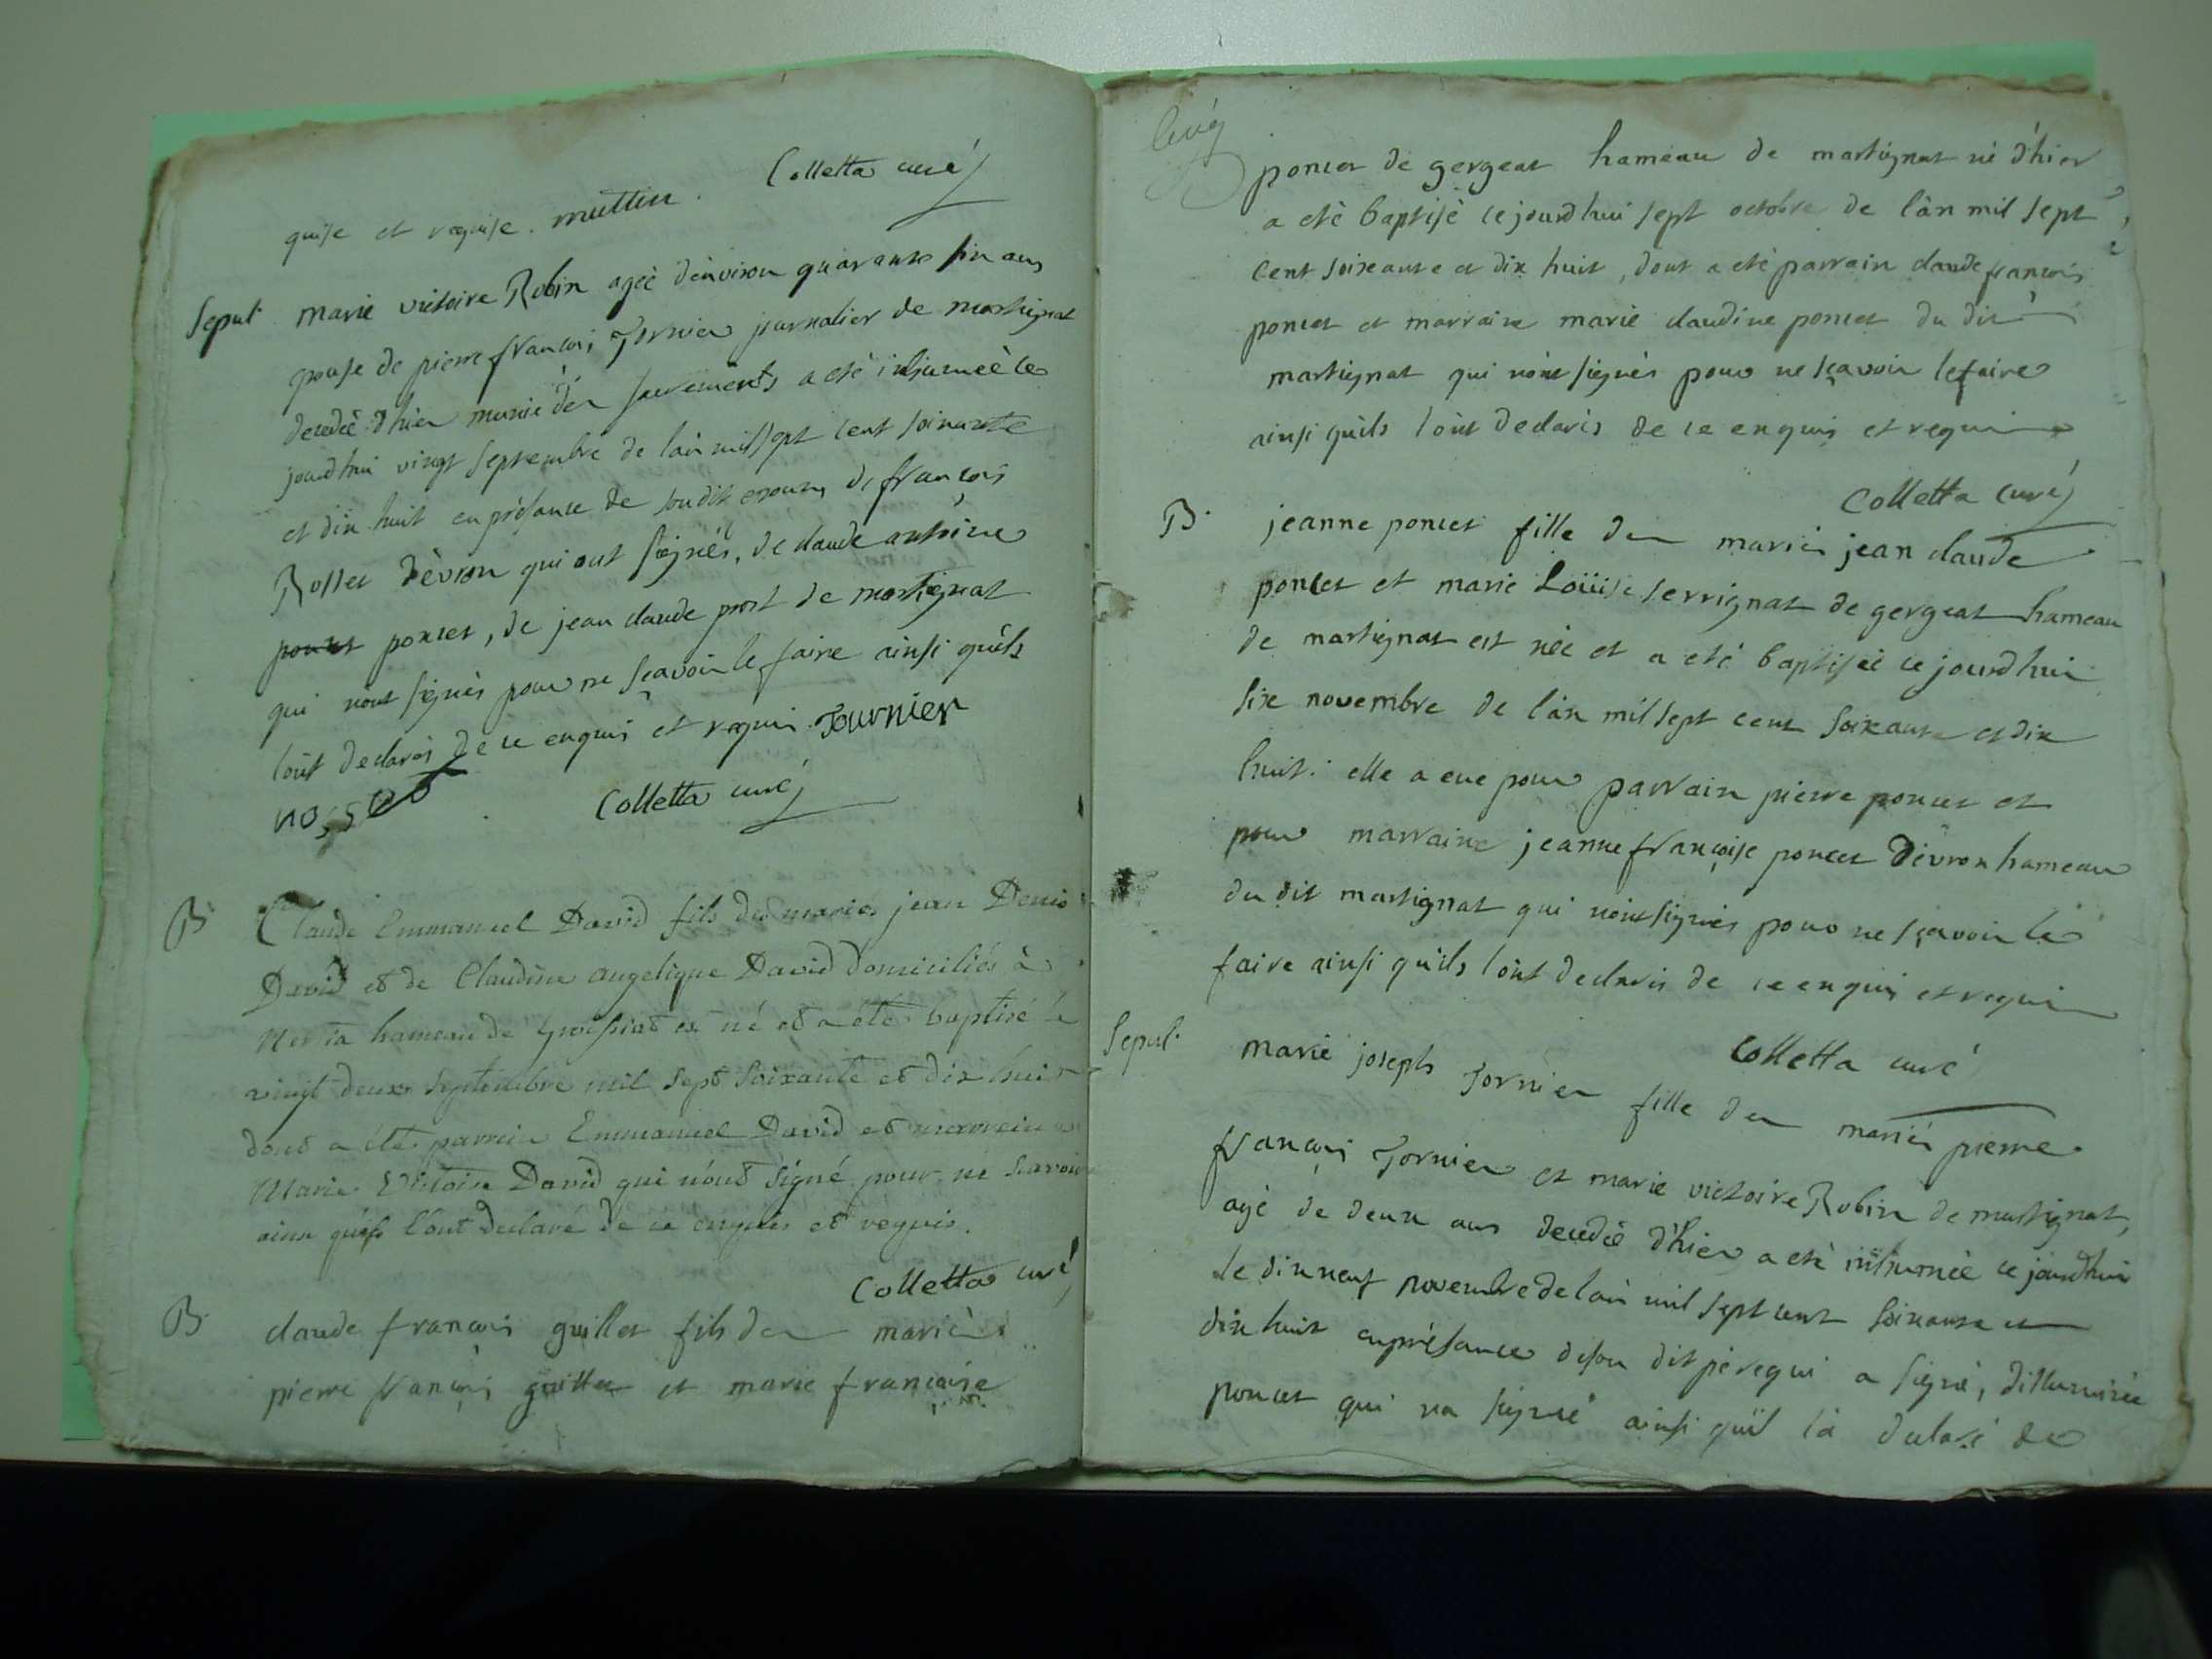 quise et requise. muttin. Colletta curé
Sepul. marie victoire Robin ageè dènviron quarante sin ans
epouse de pierre francois Tornier journalier de martignat
decedèè d'hier munie des sacrements a etè inhumèè ce
jourdhui vingt septembre de làn mil sept cent soixante
et dix huit en prèsance de sondit epoux, de francois
Rollet dèvron qui ont signès, de claude antoine
poncet, de jean claude prost de martignat
qui nònt signès pour ne sçavoir le faire ainsi quils
lònt declarès de ce enquis et requis. Tournier
Colletta curé
B. Claude Emmanuel David fils des mariés jean Denis
David et de Claudine angelique David domiciliés à
Nercia hameau de Groissiat est né et a été baptisé le
vingt deux septembre mil sept soixante et dix huit
dont a été parrain Emmanuel David et marraine
Marie Victoire David qui n'ont signé pour ne savoir
ainsi qu'ils l'ont declaré de ce enquis et requis.
Colletta curé
B. claude francois guillet fils des marièes
pierre francois guillet et marie francoise
poncet de gergeat hameau de martignat nè d'hier
a etè baptisè ce jourdhui sept octobre de làn mil sept
cent soixante et dix huit, dont a etè parrain claude francois
poncet et marraine marie claudine poncet du dit
martignat qui nònt signès pour ne sçavoir le faire
ainsi quils lònt declarès de ce enquis et requis
Colletta curé
B. jeanne poncet fille des mariès jean claude
poncet et marie Loüise serrignat de gergeat hameau
de martignat est nèe et a etè baptisèè ce jourdhui
six novembre de làn mil sept cent soixante et dix
huit. elle a eue pour parrain pierre poncet et
pour marraine jeanne françoise poncet Dèvron hameau
du dit martignat qui nònt signès pour ne sçavoir le
faire ainsi quils lònt declarès de ce enquis et requis
Colletta curé
Sepul. marie joseph Tornier fille des mariès pierre
françois Tornier et marie victoire Robin de martignat,
agè de deux ans decedèè d'hier a etè inhumèè ce jourdhui
le dix neuf novembre de làn mil sept cent soixante et
dix huit en prèsance de son dit père qui a signè,
poncet qui na signè ainsi quil là declarè de